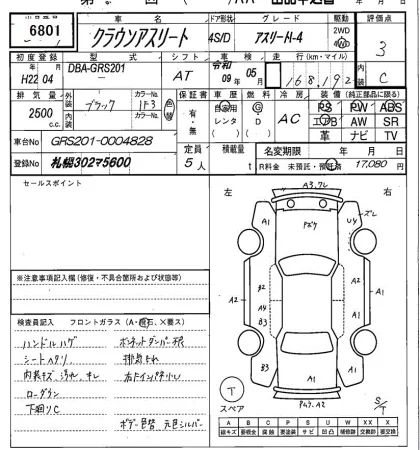 出品番号 6801
車名 クラウンアスリート
ドア形状 4S/D
グレード アスリートi-4
駆動 2WD 4WD
評価点 3 C
初度登録 H22年 04月
型式 DBA-GRS201
シフト AT
車検 令和09年05月
走行(km・マイル) 168,192
排気量 2500 c.c.
外装 ブラック
カラーNo. 1F3
内装
カラーNo.
保証書 有・無
車歴 自家用 レンタ
燃料 G・D
冷房 AC
装備(純正部品に限る)
PS PW ABS
エアB AW SR
革 ナビ TV
車台No GRS201-0004828
登録No 札幌302マ5600
定員 5人
積載量
名変期限 年 月 日
R料金 未預託・預託済 17,080 円
セールスポイント
左 右
A3.フレ
A1
Pスク
U4
ズレ
A1
A2
B2
A4
B3
A1
A2
A1
B3
A1
A1
Pムケ.A2
※注意事項記入欄(修復・不具合箇所および状態等)
検査員記入 フロントガラス(A・飛石、X要ス)
ハンドルハゲ
シートヘタリ
内装キズ 汚れ キレ
ローダウン
下廻りC
ボンネットダンパー不良
ボデー色替 元色シルバー
スペア T
S/T
A B P C S U W X XX
線キズ 要板金 要塗装 腐食 サビ 凹凸 補修跡 交換跡 要交換